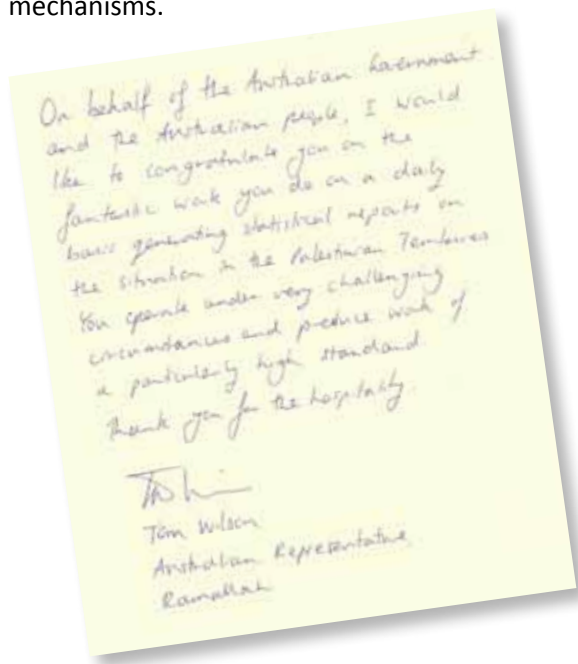 mechanisms.
On behalf of the Australian Government
and the Australian people, I would
like to congratulate you on the
fantastic work you do on a daily
basis generating statistical reports on
the situation in the Palestinian Territories
You operate under very challenging
circumstances and produce work of
a particularly high standard.
Thank you for the hospitality.
Tom Wilson
Australian Representative
Ramallah